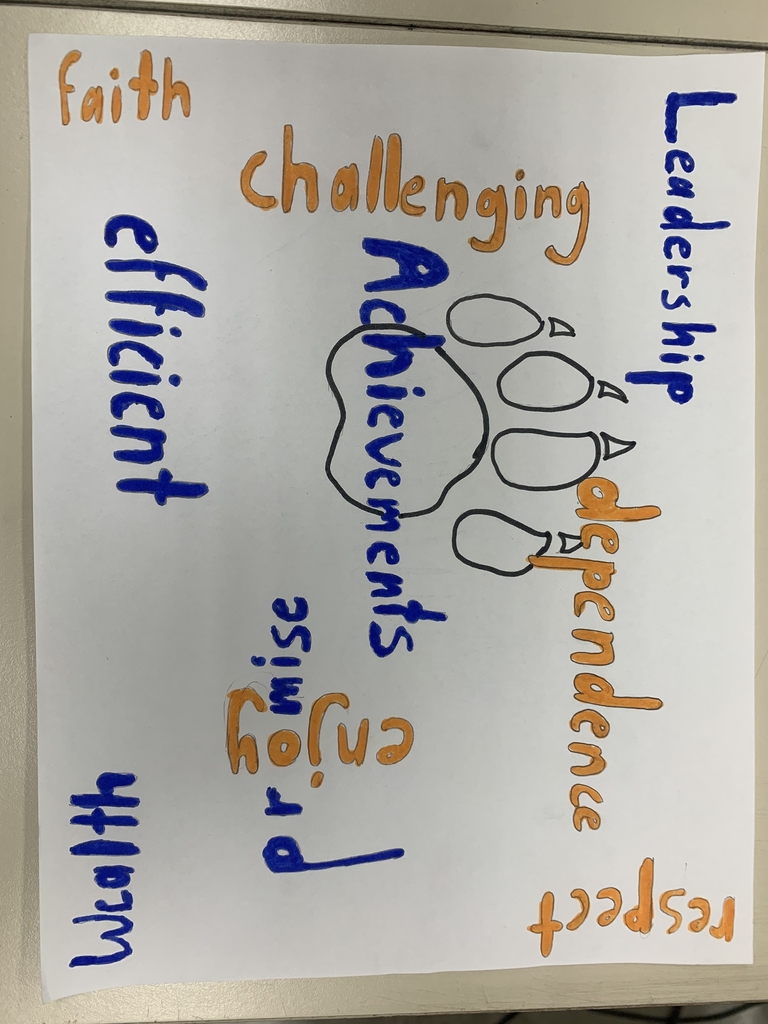 Leadership
dependence
respect
challenging
Achievements
enjoy
promise
faith
efficient
wealth